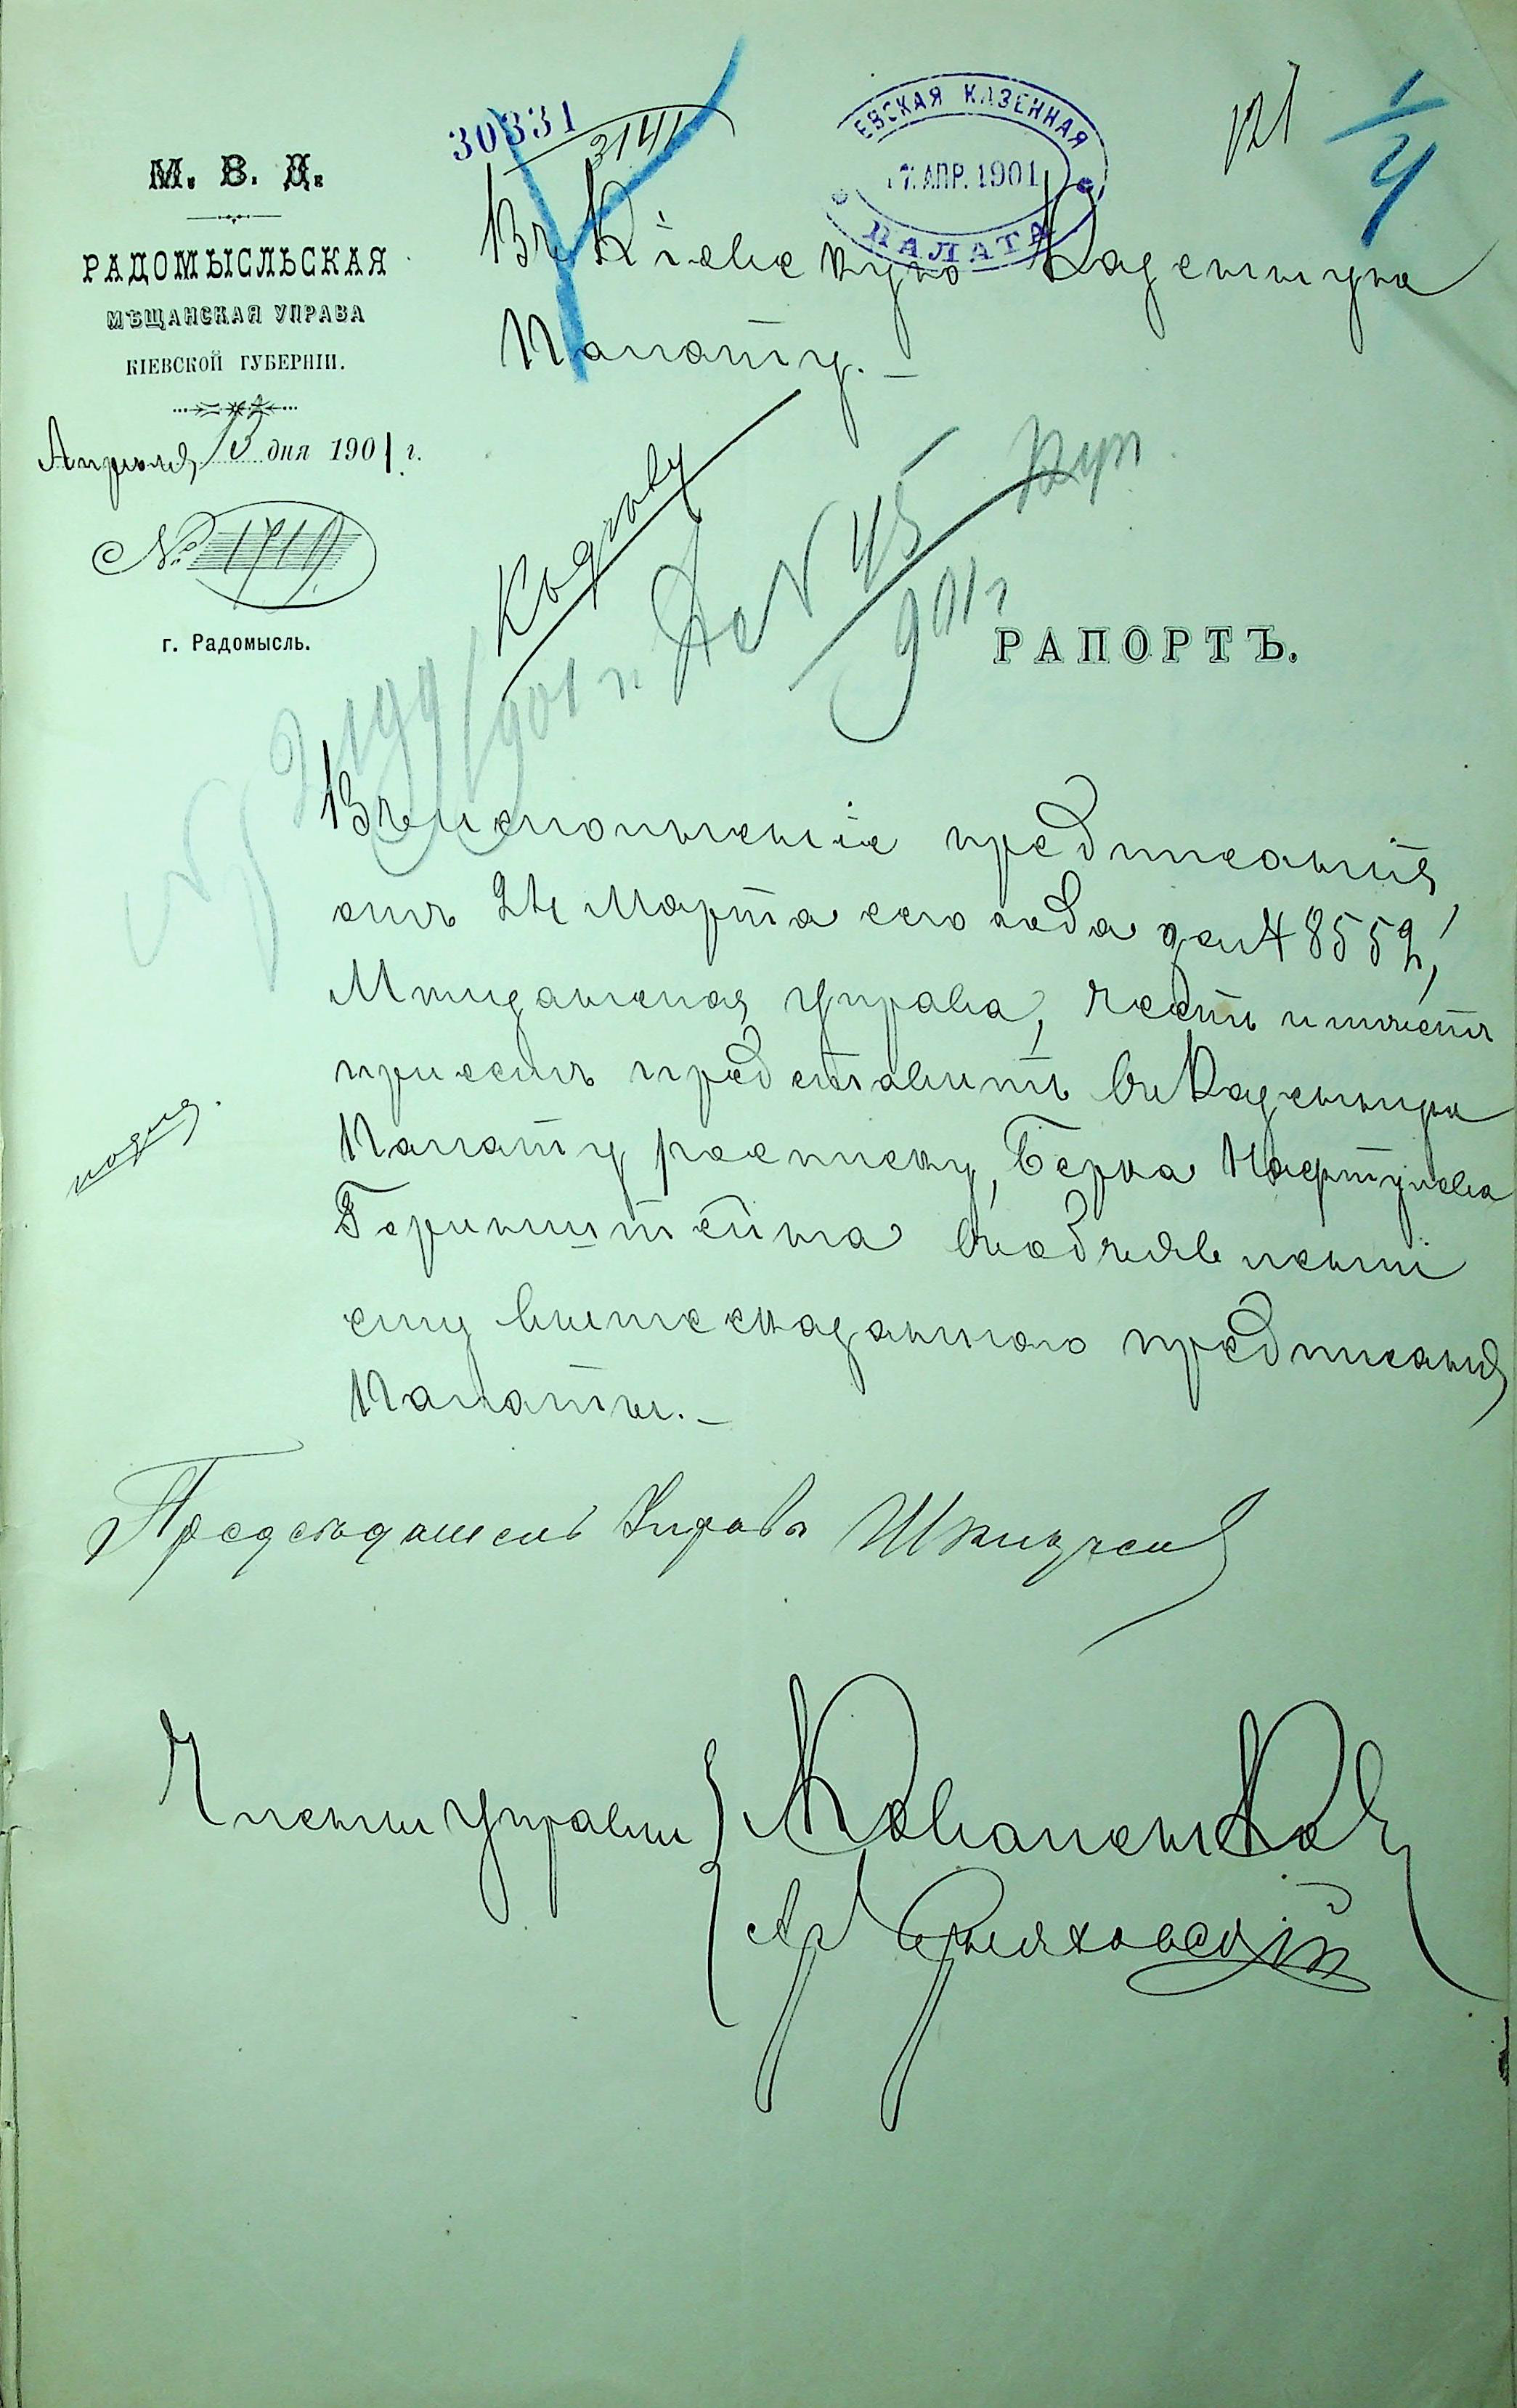 30331
3141
ЕВСКАЯ КАЗЕННАЯ
17. АПР. 1901
ПАЛАТА
121
1/4
М. В. Д.
РАДОМЫСЛЬСКАЯ
МѢЩАНСКАЯ УПРАВА
КІЕВСКОЙ ГУБЕРНІИ.
Апрѣля 13 дня 1901 г.
№ 1719
г. Радомысль.
Въ Кіевскую Казенную
Палату.
Козлову
До № 45
901 г
901 г.
РАПОРТЪ.
Въ исполненіе предписанія
отъ 24 Марта сего года за № 8552,
Мѣщанская управа, честь имѣетъ
при семъ представить въ Казенную
Палату росписку, Берка Нафтулева
Геринштейна въ объявленіи
ему вышесказанного предписанія
Палаты.
Предсѣдатель Управы
Члены управы